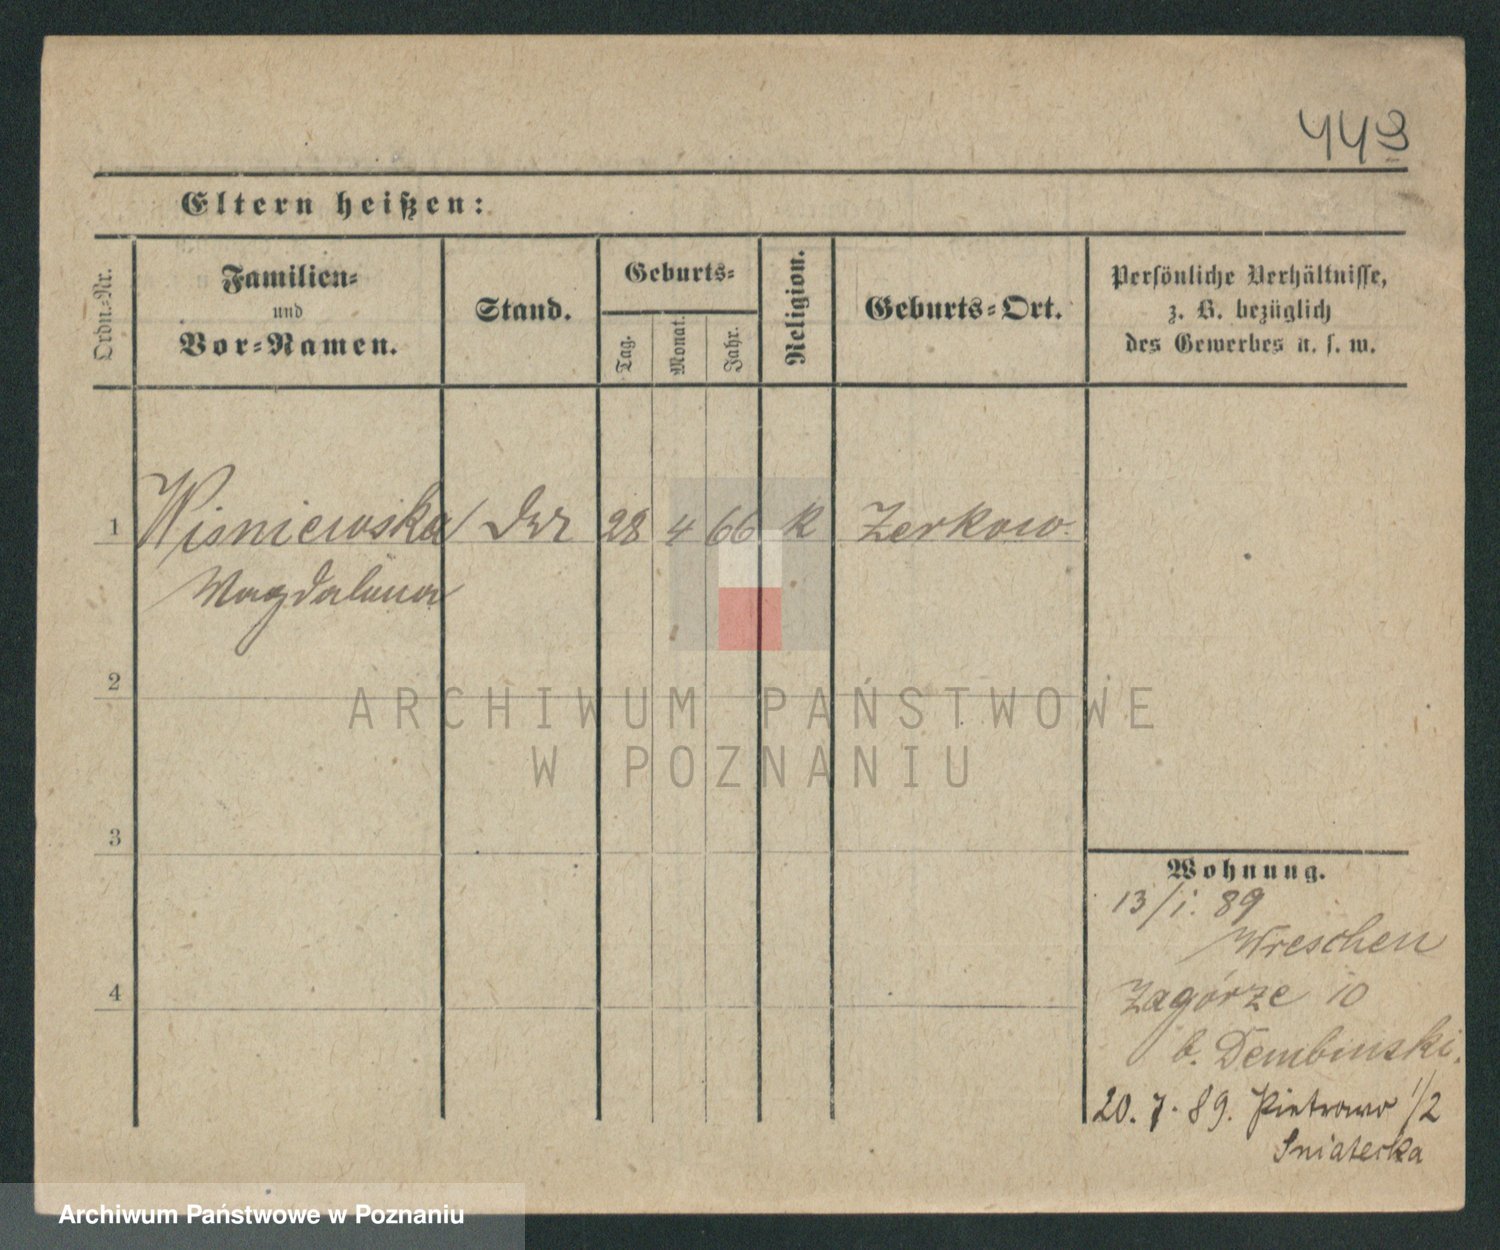 443
Eltern heißen:
Ordn.-Nr.
Familien-
und
Vor-Namen.
Stand.
Geburts-
Tag.
Monat.
Jahr.
Religion.
Geburts-Ort.
Persönliche Verhältnisse,
z. B. bezüglich
des Gewerbes u. s. w.
1 Wisniewska 28 4 66 K Zerkow.
Magdalena
2
3
4
Wohnung.
13/1. 89
Wreschen
Zagórze 10
b. Dembinski.
20. 7. 89. Pietrowo 1/2
Sniatecka
ARCHIWUM PAŃSTWOWE
W POZNANIU
Archiwum Państwowe w Poznaniu